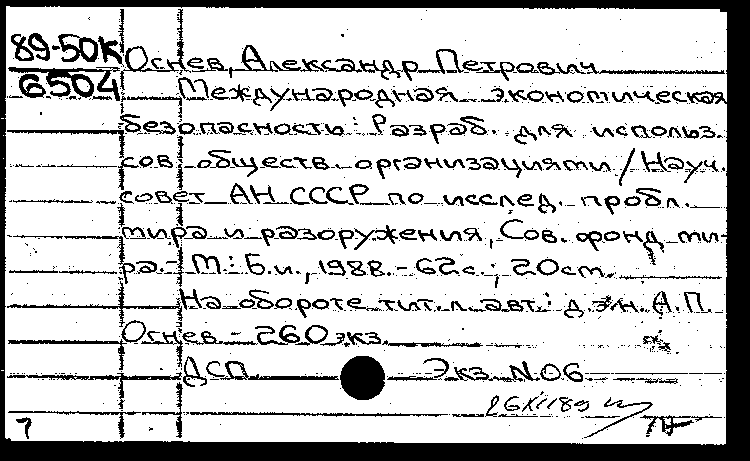 89-50К Огнев, Александр Петрович
6504 Международная экономическая
безопасность: Разраб. для использ.
сов. обществ. организациями / Науч.
совет АН СССР по исслед. пробл.
мира и разоружения, Сов. фонд ми-
ра.- М.: Б.и., 1988.- 62с.; 20см.
На обороте тит.л. авт.: д.э.н. А.П.
Огнев - 260 экз.
ДСП. Экз. N.06
7